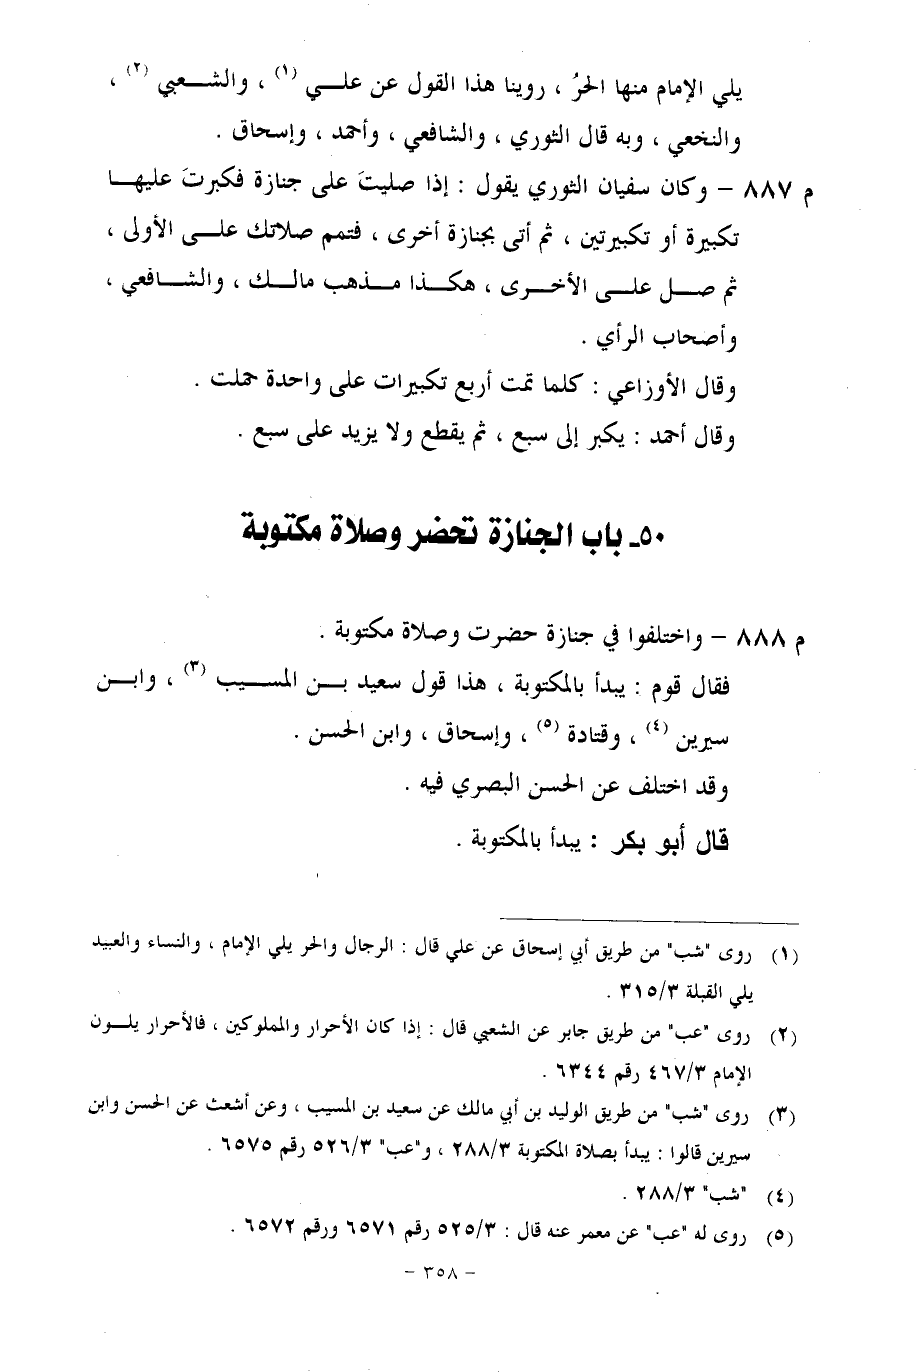 يلي الإمام منها الحرُ ، روينا هذا القول عن علي (١) ، والشعبي (٢) ،
والنخعي ، وبه قال الثوري ، والشافعي ، وأحمد ، وإسحاق .
م ٨٨٧ – وكان سفيان الثوري يقول : إذا صليتَ على جنازة فكبرتَ عليها
تكبيرة أو تكبيرتين ، ثم أتى بجنازة أخرى ، فتمم صلاتك على الأولى ،
ثم صل على الأخرى ، هكذا مذهب مالك ، والشافعي ،
وأصحاب الرأي .
وقال الأوزاعي : كلما تمت أربع تكبيرات على واحدة حملت .
وقال أحمد : يكبر إلى سبع ، ثم يقطع ولا يزيد على سبع .
٥٠ـ باب الجنازة تحضر وصلاة مكتوبة
م ٨٨٨ – واختلفوا في جنازة حضرت وصلاة مكتوبة .
فقال قوم : يبدأ بالمكتوبة ، هذا قول سعيد بن المسيب (٣) ، وابن
سيرين (٤) ، وقتادة (٥) ، وإسحاق ، وابن الحسن .
وقد اختلف عن الحسن البصري فيه .
قال أبو بكر : يبدأ بالمكتوبة .
(١) روى "شب" من طريق أبي إسحاق عن علي قال : الرجال والحر يلي الإمام ، والنساء والعبيد
يلي القبلة ٣١٥/٣ .
(٢) روى "عب" من طريق جابر عن الشعبي قال : إذا كان الأحرار والمملوكين ، فالأحرار يلون
الإمام ٤٦٧/٣ رقم ٦٣٤٤ .
(٣) روى "شب" من طريق الوليد بن أبي مالك عن سعيد بن المسيب ، وعن أشعث عن الحسن وابن
سيرين قالوا : يبدأ بصلاة المكتوبة ٢٨٨/٣ ، و"عب" ٥٢٦/٣ رقم ٦٥٧٥ .
(٤) "شب" ٢٨٨/٣ .
(٥) روى له "عب" عن معمر عنه قال : ٥٢٥/٣ رقم ٦٥٧١ ورقم ٦٥٧٢ .
– ٣٥٨ –